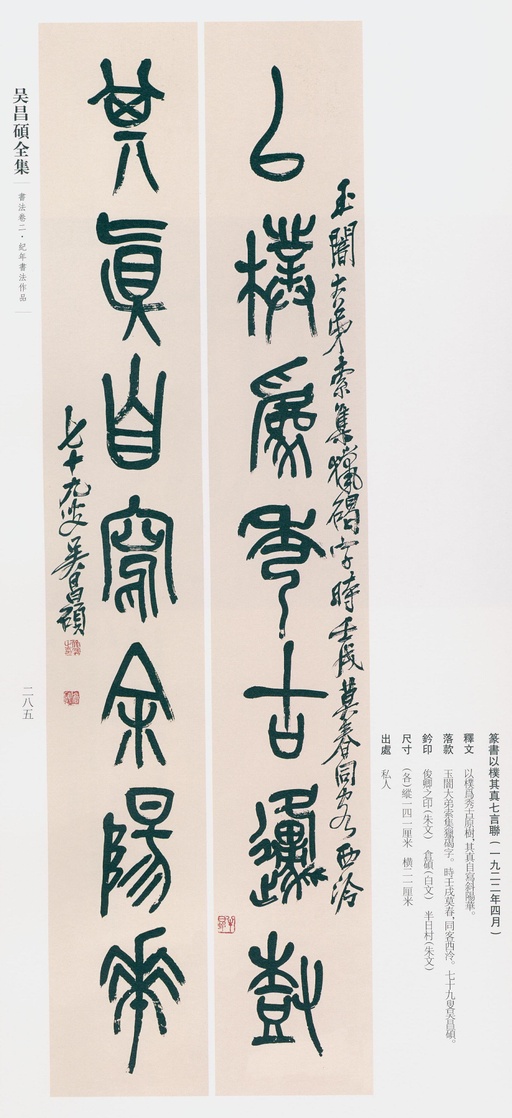 篆書以樸其真七言聯(一九二二年四月)
釋文 以樸爲秀古原樹,其真自寫斜陽華。
落款 玉闇大弟索集獵碣字。時壬戌莫春,同客西泠。七十九叟吳昌碩。
鈐印 俊卿之印(朱文) 倉碩(白文) 半日村(朱文)
尺寸 (各)縱一四一厘米 橫二二厘米
出處 私人
玉闇大弟索集獵碣字時壬戌莫春同客西泠
以樸爲秀古邍樹
其真自寫余陽華
七十九叟吳昌碩
吴昌碩全集
書法卷二·紀年書法作品
二八五